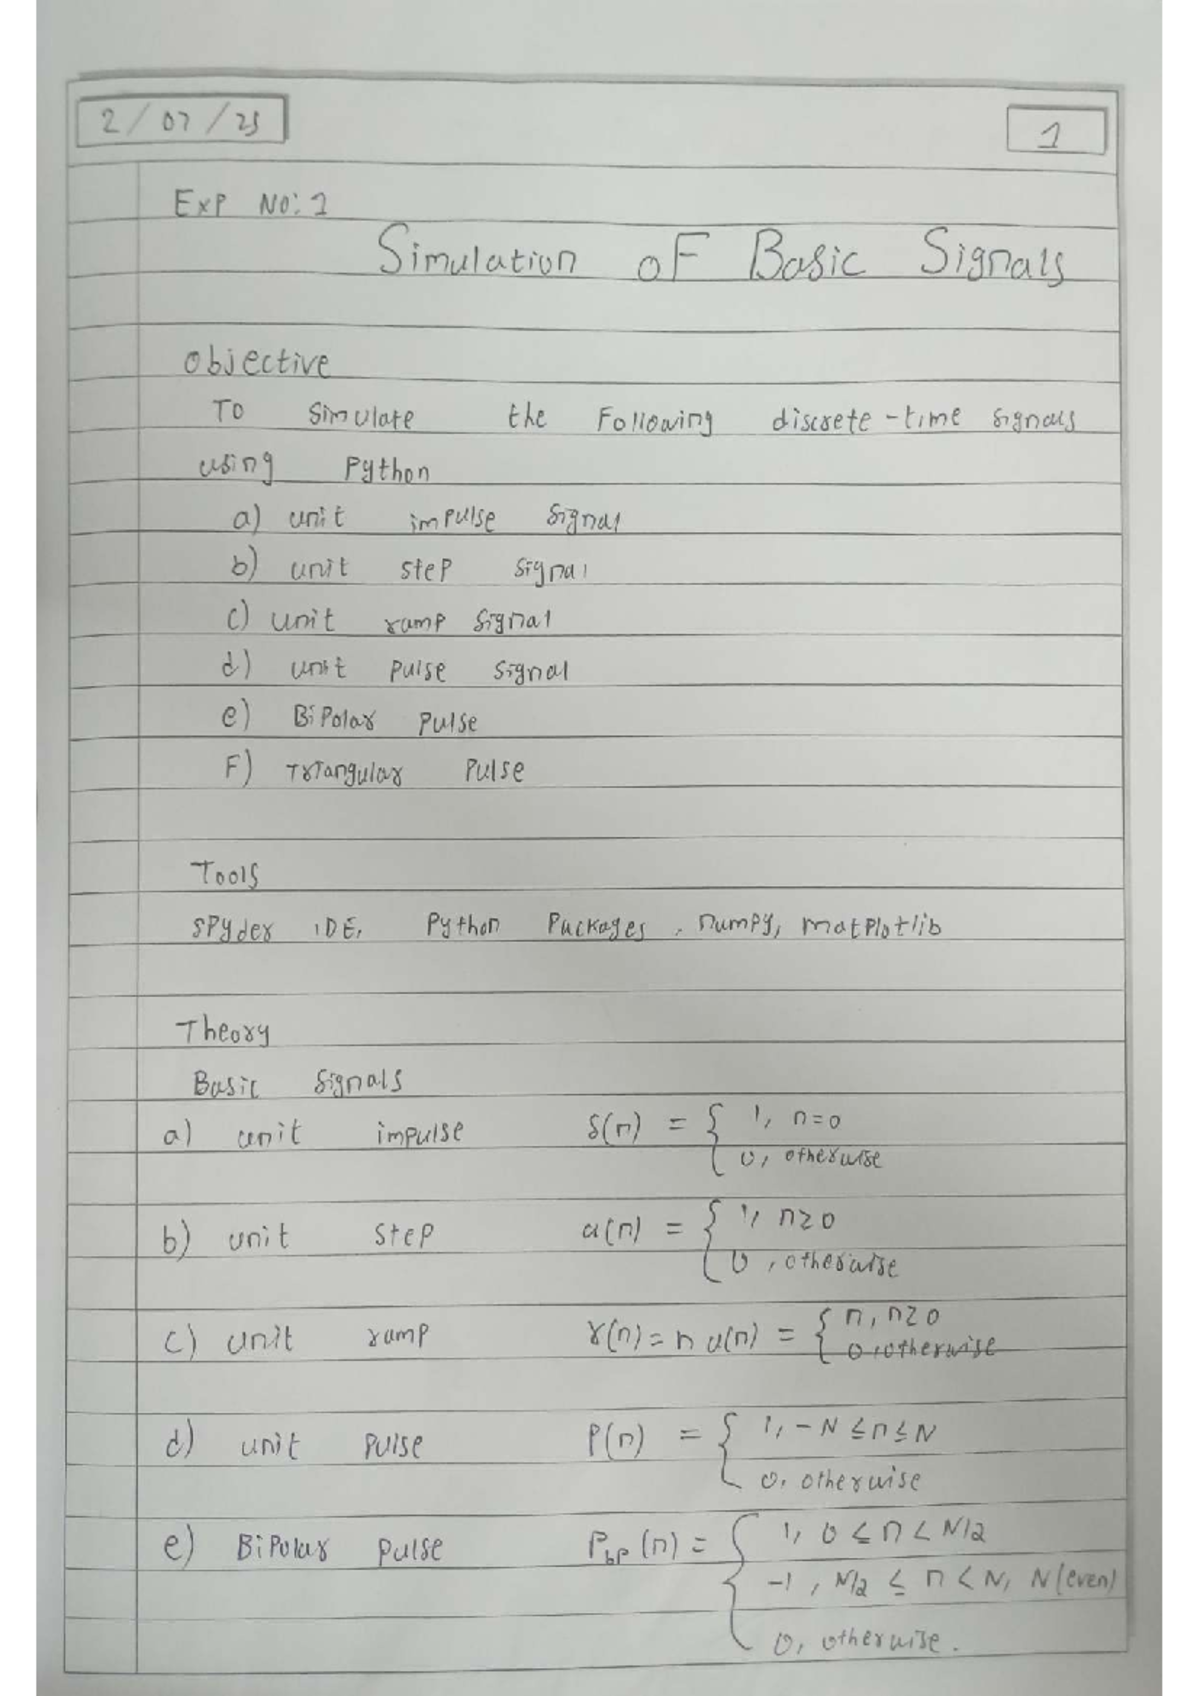 2/07/25
1
Exp No: 1
Simulation of Basic Signals
Objective
To Simulate the Following discrete-time signals
using Python
a) unit impulse signal
b) unit step signal
c) unit ramp signal
d) unit pulse signal
e) BiPolar Pulse
F) Triangular Pulse
Tools
Spyder IDE, Python Packages, numpy, matplotlib
Theory
Basic Signals
a) unit impulse δ(n) = { 1, n=0
0, otherwise
b) unit step u(n) = { 1, n≥0
0, otherwise
c) unit ramp r(n) = n u(n) = { n, n≥0
0, otherwise
d) unit Pulse P(n) = { 1, -N ≤ n ≤ N
0, otherwise
e) BiPolar Pulse P_bp(n) = { 1, 0 ≤ n < N/2
-1, N/2 ≤ n < N, N(even)
0, otherwise.